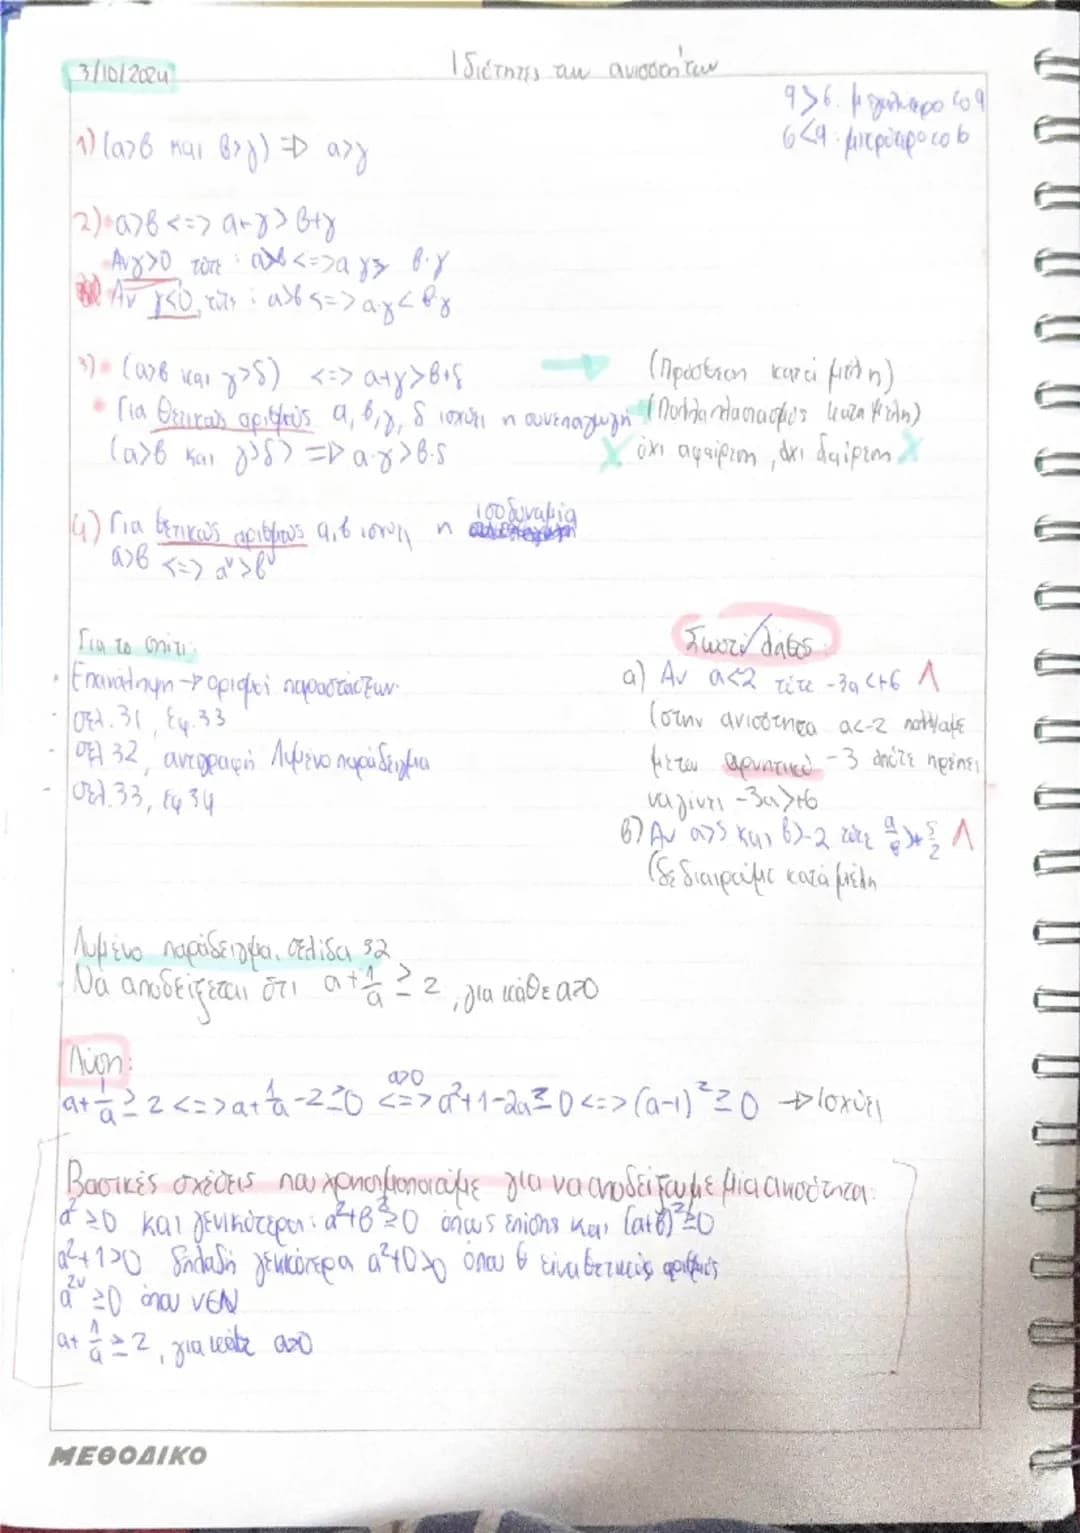 3/10/2024
Ιδιότητες των ανισοτήτων
9>6: μεγαλύτερο το 9
6<9: μικρότερο το 6
1) (α>β και β>γ) => α>γ
2) α>β <=> α+γ > β+γ
Αν γ>0 τότε: α>β <=> αγ > β·γ
Αν γ<0, τότε: α>β <=> α·γ < βγ
3) (α>β και γ>δ) <=> α+γ>β+δ → (Πρόσθεση κατά μέλη)
Για θετικούς αριθμούς α, β, γ, δ ισχύει η συνεπαγωγή (Πολλαπλασιασμός κατά μέλη)
(α>β και γ>δ) => α·γ>β·δ X όχι αφαίρεση, όχι διαίρεση X
4) Για θετικούς αριθμούς α, β ισχύει η ισοδυναμία
α>β <=> αᵛ>βᵛ
Για το σπίτι:
Επανάληψη → ορισμοί παραστάσεων
σελ.31, Εφ.33
σελ 32, αντιγραφή λυμένο παράδειγμα
σελ.33, Εφ 34
Σωστό/Λάθος:
α) Αν α<2 τότε -3α<+6 Λ
(στην ανισότητα α<-2 πολ/με
με τον αρνητικό -3 οπότε πρέπει
να γίνει -3α>+6
β) Αν α>5 και β>-2 τότε α/β>+5/2 Λ
(δε διαιρούμε κατά μέλη
Λυμένο παράδειγμα, σελίδα 32
Να αποδείξεται ότι α+1/α ≥ 2, για κάθε α>0
Λύση:
α+1/α ≥ 2 <=> α+1/α-2≥0 <=>(α>0) α²+1-2α≥0 <=> (α-1)²≥0 → Ισχύει
Βασικές σχέσεις που χρησιμοποιούμε για να αποδείξουμε μια ανισότητα:
α²≥0 και γενικότερα: α²+β²≥0 όπως επίσης και (α+β)²≥0
α²+1>0 δηλαδή γενικότερα α²+θ>0 όπου θ είναι θετικός αριθμός
α²ᵛ≥0 όπου ν∈Ν
α+1/α≥2, για κάθε α>0
ΜΕΘΟΔΙΚΟ